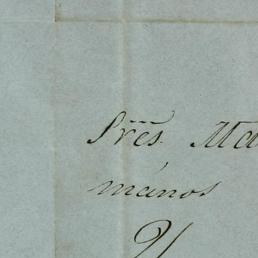 Srẽs. Ma
manos